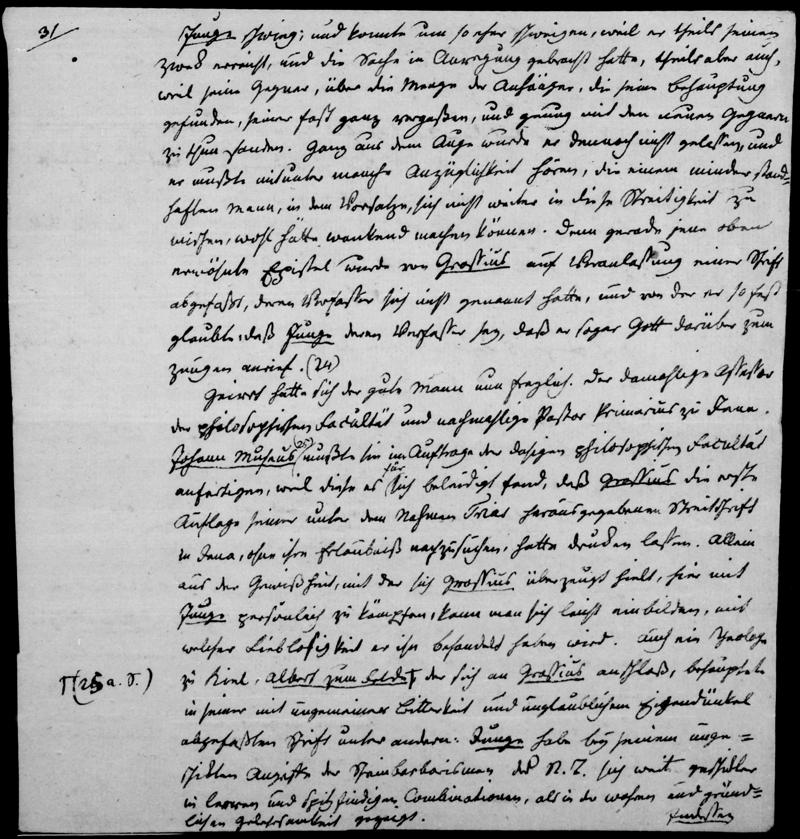 31
Junge schwieg; und konnte um so eher schweigen, weil er theils seinen
Zwek erreicht, und die Sache in Anregung gebracht hatte, theils aber auch,
weil seine Gegner, über die Menge der Anhänger, die seine Behauptung
gefunden, seiner fast ganz vergaßen, und genug mit den neuen Gegnern
zu thun fanden. Ganz aus dem Auge wurde er dennoch nicht gelassen, und
er mußte mitunter manche Anzüglichkeit hören, die einem minder stand=
haften Mann, in dem Vorsatze, sich nicht weiter in diese Streitigkeit zu
mischen, wohl hätte wankend machen können. Denn gerade jene oben
erwähnte Epistel wurde von Grossius auf Veranlassung einer Schrift
abgefaßt, deren Verfasser sich nicht genannt hatte, und von der er so fest
glaubte, daß Junge deren Verfasser sey, daß er sogar Gott darüber zum
Zeugen anrief. (24)
Geirret hatte sich der gute Mann nun freylich. Der damahlige Assessor
der philosophischen Facultät und nachmahlige Pastor Primarius zu Jena.
Johann Museus (25) mußte sie im Auftrage der dasigen philosophischen Facultät
anfertigen, weil diese es für sich beleidigt fand, daß Grossius die erste
Auflage seiner unter dem Nahmen Trias herausgegebenen Streitschrift
in Jena, ohne ihre Erlaubniß nachzusuchen, hatte drucken lassen. Allein
aus der Gewißheit, mit der sich Grossius überzeugt hielt, hier mit
Junge persönlich zu kämpfen, kann man sich leicht einbilden, mit
welcher Lieblosigkeit er ihn behandelt haben wird. Auch ein Theologe
zu Kiel, Albert zum Felde, der sich an Grossius anschloß, behauptete
(25 a. b.)
in seiner mit ungemeiner Bitterkeit und unglaublichem Eigendünkel
abgefaßten Schrift unter andern: Junge habe bey seinem unge=
schikten Angriffe der Scheinbarbarismen des N. T. sich weit geschikter
in leeren und spitzfindigen Combinationen, als in der wahren und gründ=
lichen Gelehrsamkeit gezeigt.
Indessen